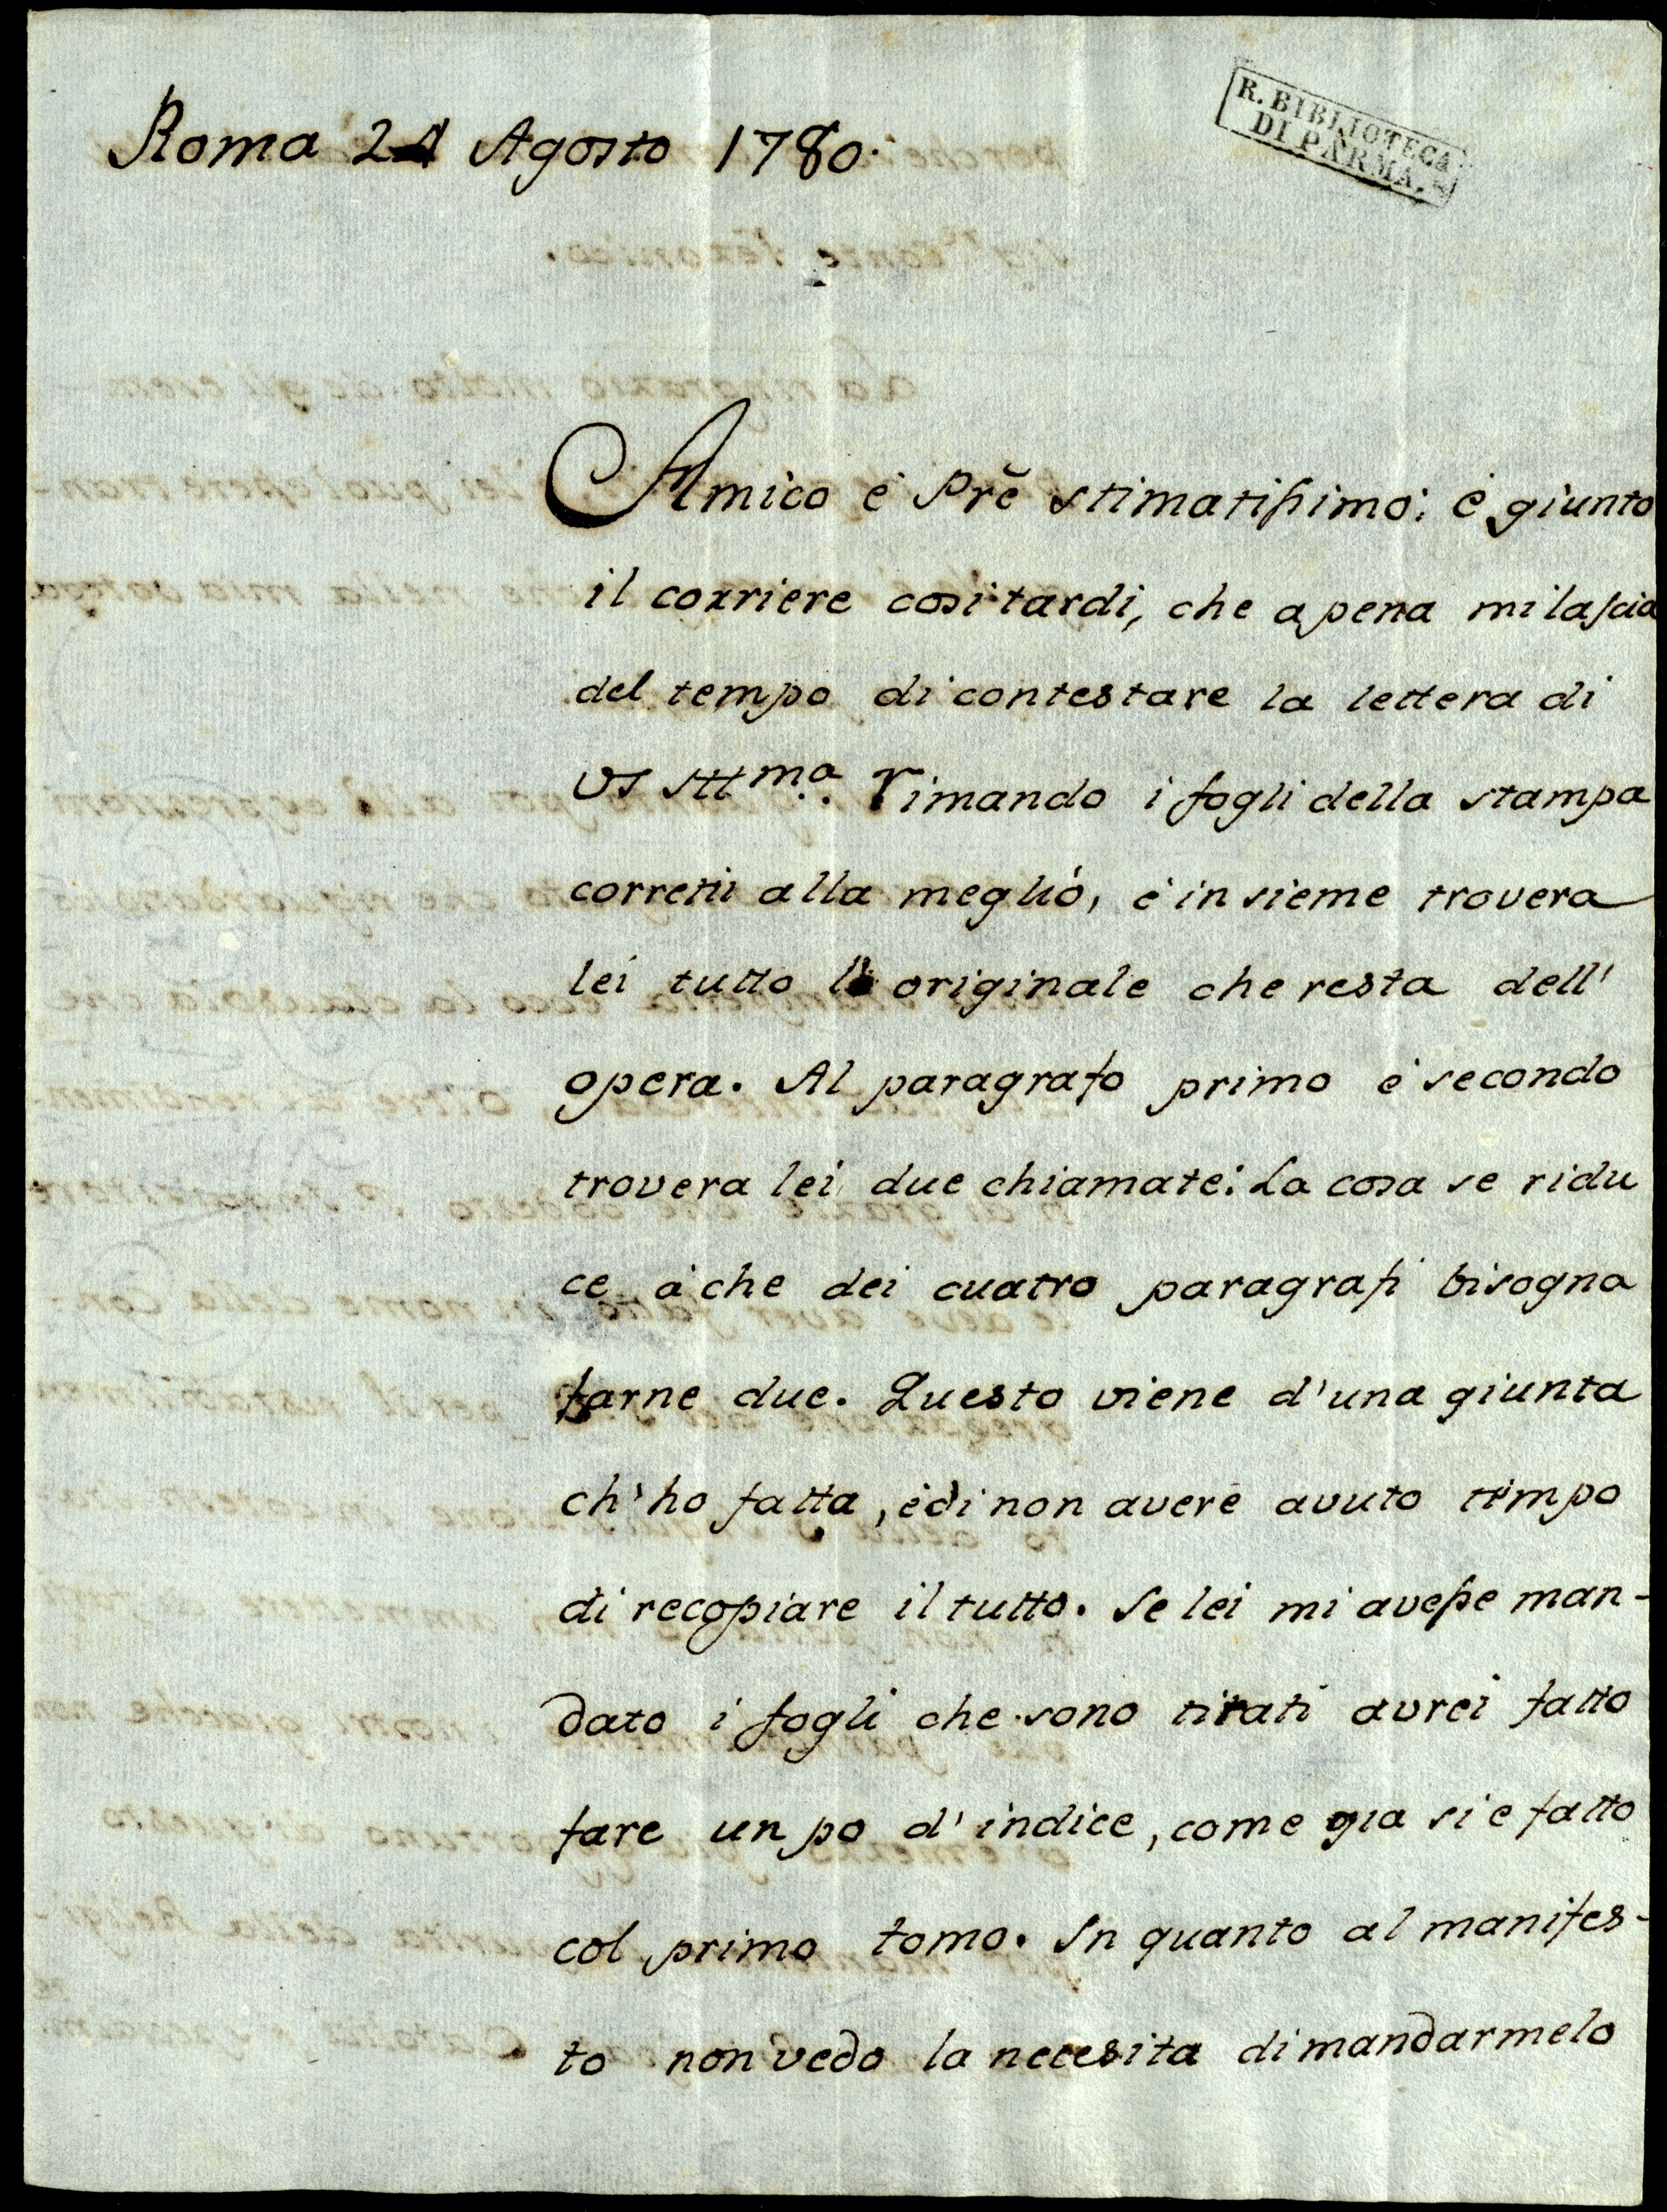 Roma 24 Agosto 1780.
R. BIBLIOTECA
DI PARMA.
Amico é Prẽ stimatissimo: é giunto
il corriere cosi tardi, che apena mi lascia
del tempo di contestare la lettera di
VS Sttma. rimando i fogli della stampa
corretti alla meglió, é insieme trovera
lei tutto l' originale che resta dell'
opera. Al paragrafo primo é secondo
trovera lei due chiamate: La cosa se ridu
ce á che dei cuatro paragrafi bisogna
farne due. Questo viene d'una giunta
ch'ho fatta, é di non avere avuto tempo
di recopiare il tutto. Se lei mi avesse man-
dato i fogli che sono tirati avrei fatto
fare un po d'indice, come gia si e fatto
col primo tomo. In quanto al manifes-
to non vedo la necesita di mandarmelo